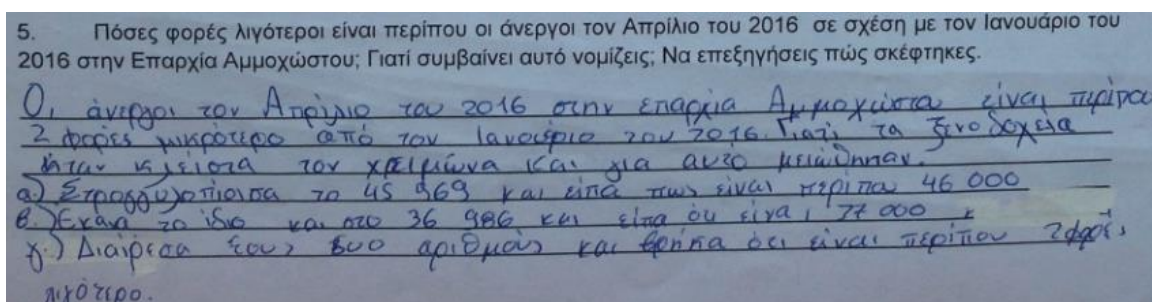 5. Πόσες φορές λιγότεροι είναι περίπου οι άνεργοι τον Απρίλιο του 2016 σε σχέση με τον Ιανουάριο του
2016 στην Επαρχία Αμμοχώστου; Γιατί συμβαίνει αυτό νομίζεις; Να επεξηγήσεις πώς σκέφτηκες.
Οι άνεργοι τον Απρίλιο του 2016 στην επαρχία Αμμοχώστα είναι περίπου
2 φορές μικρότερο από τον Ιανουάριο του 2016. Γιατί τα ξενοδοχεία
ήταν κλειστα τον χειμώνα και για αυτό μειώθηκαν.
α) Στρογγυλοπίρισα το 45 969 και είπα πως είναι περίπου 46 000
β. Έκανα το ίδιο και στο 36 986 και είπα ότι είναι 77 000
γ.) Διαίρεσα τους δυο αριθμούς και βρήκα ότι είναι περίπου 2 φορές
λιγότερο.